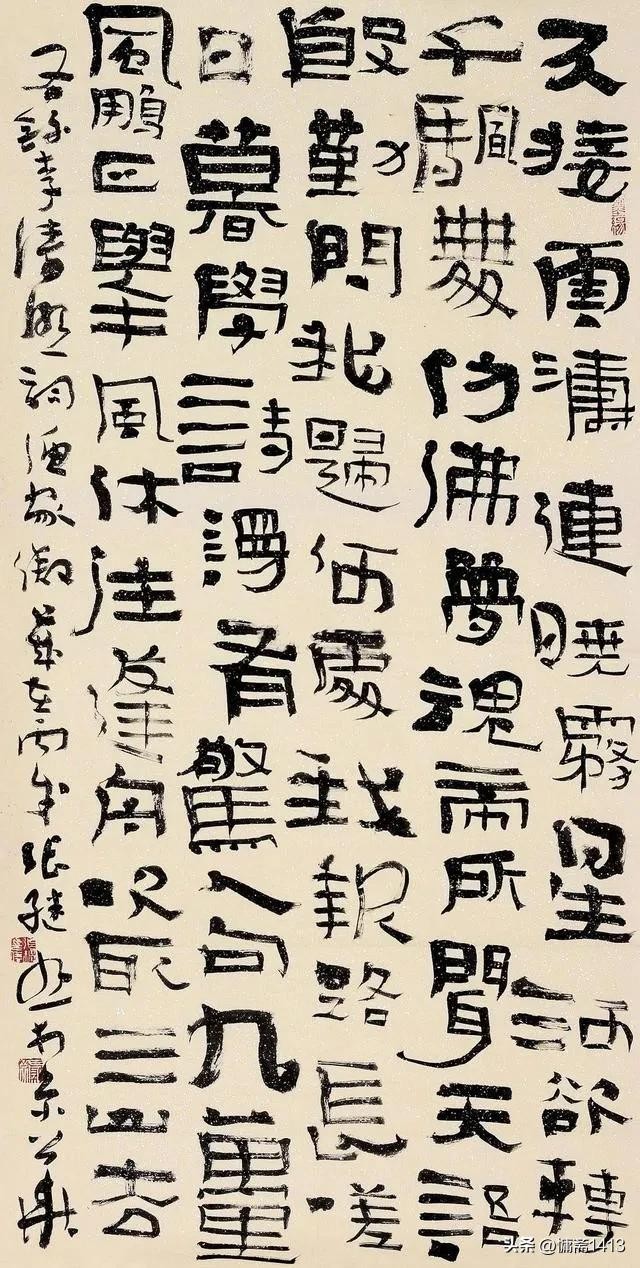 天接雲濤連曉霧星河欲轉
千颿舞仿佛夢魂帝所聞天語
殷勤問我歸何處我報路長嗟
日暮學詩謾有驚人句九萬里
風鵬正舉風休住蓬舟吹取三山去
右錄李清照詞漁家傲歲在丙張繼於京華
头条 @慵斋1413